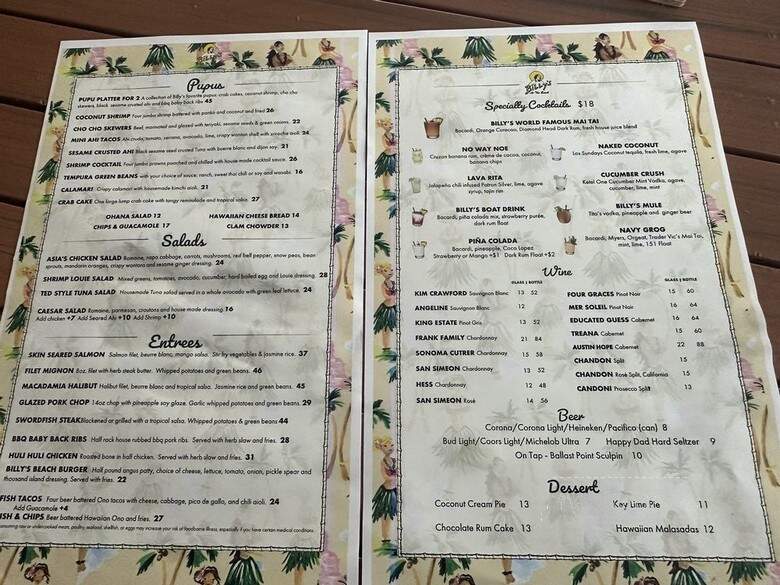 BILLY'S
Pupus
PUPU PLATTER FOR 2 A collection of Billy's favorite pupus, crab cakes, coconut shrimp, cho cho
skewers, black sesame crusted ahi and bbq baby back ribs 45
COCONUT SHRIMP Four jumbo shrimp battered with panko and coconut and fried 26
CHO CHO SKEWERS Beef, marinated and glazed with teriyaki, sesame seeds & green onions. 22
MINI AHI TACOS Ahi crudo, tomato, serrano, avocado, lime, crispy wonton shell with sriracha aioli. 24
SESAME CRUSTED AHI Black sesame seed crusted Tuna with beurre blanc and dijon soy. 21
SHRIMP COCKTAIL Four jumbo prawns poached and chilled with house made cocktail sauce. 26
TEMPURA GREEN BEANS with your choice of sauce: ranch, sweet thai chili or soy and wasabi. 16
CALAMARI Crispy calamari with housemade kimchi aioli. 21
CRAB CAKE One large lump crab cake with tangy remoulade and tropical salsa. 27
OHANA SALAD 12 HAWAIIAN CHEESE BREAD 14
CHIPS & GUACAMOLE 17 CLAM CHOWDER 13
Salads
ASIA'S CHICKEN SALAD Romaine, napa cabbage, carrots, mushrooms, red bell pepper, snow peas, bean
sprouts, mandarin oranges, crispy wontons and sesame ginger dressing. 24
SHRIMP LOUIE SALAD Mixed greens, tomatoes, avocado, cucumber, hard boiled egg and Louie dressing. 28
TED STYLE TUNA SALAD Housemade Tuna salad served in a whole avocado with green leaf lettuce. 24
CAESAR SALAD Romaine, parmesan, croutons and house made dressing. 16
Add chicken +7 Add Seared Ahi +10 Add Shrimp +10
Entrees
SKIN SEARED SALMON Salmon filet, beurre blanc, mango salsa. Stir fry vegetables & jasmine rice. 37
FILET MIGNON 8oz. filet with herb steak butter. Whipped potatoes and green beans. 46
MACADAMIA HALIBUT Halibut filet, beurre blanc and tropical salsa. Jasmine rice and green beans. 45
GLAZED PORK CHOP 14oz chop with pineapple soy glaze. Garlic whipped potatoes and green beans. 29
SWORDFISH STEAK Blackened or grilled with a tropical salsa. Whipped potatoes & green beans 44
BBQ BABY BACK RIBS Half rack house rubbed bbq pork ribs. Served with herb slaw and fries. 28
HULI HULI CHICKEN Roasted bone in half chicken. Served with herb slaw and fries. 31
BILLY'S BEACH BURGER Half pound angus patty, choice of cheese, lettuce, tomato, onion, pickle spear and
thousand island dressing. Served with fries. 22
FISH TACOS Four beer battered Ono tacos with cheese, cabbage, pico de gallo, and chili aioli. 24
Add Guacamole +4
ISH & CHIPS Beer battered Hawaiian Ono and fries. 27
onsuming raw or undercooked meats, poultry, seafood, shellfish, or eggs may increase your risk of foodborne illness, especially if you have certain medical conditions.
BILLY'S
Specialty Cocktails $18
BILLY'S WORLD FAMOUS MAI TAI
Bacardi, Orange Curacao, Diamond Head Dark Rum, fresh house juice blend
NO WAY NOE
Cruzan banana rum, crème de cacao, coconut,
banana chips
NAKED COCONUT
Los Sundays Coconut tequila, fresh lime, agave
LAVA RITA
Jalapeño chili infused Patron Silver, lime, agave
syrup, tajin rim
CUCUMBER CRUSH
Ketel One Cucumber Mint Vodka, agave,
cucumber, lime, mint
BILLY'S BOAT DRINK
Bacardi, piña colada mix, strawberry purée,
dark rum float
BILLY'S MULE
Tito's vodka, pineapple and ginger beer
PIÑA COLADA
Bacardi, pineapple, Coco Lopez
Strawberry or Mango +$1 Dark Rum Float +$2
NAVY GROG
Bacardi, Myers, Orgeat, Trader Vic's Mai Tai,
mint, lime, 151 Float
Wine
GLASS | BOTTLE
KIM CRAWFORD Sauvignon Blanc 13 52
ANGELINE Sauvignon Blanc 12
KING ESTATE Pinot Gris 13 52
FRANK FAMILY Chardonnay 21 84
SONOMA CUTRER Chardonnay 15 58
SAN SIMEON Chardonnay 13 52
HESS Chardonnay 12 48
SAN SIMEON Rosé 14 56
GLASS | BOTTLE
FOUR GRACES Pinot Noir 15 60
MER SOLEIL Pinot Noir 16 64
EDUCATED GUESS Cabernet 16 64
TREANA Cabernet 15 60
AUSTIN HOPE Cabernet 22 88
CHANDON Split 15
CHANDON Rosé Split, California 15
CANDONI Prosecco Split 13
Beer
Corona/Corona Light/Heineken/Pacifico (can) 8
Bud Light/Coors Light/Michelob Ultra 7 Happy Dad Hard Seltzer 9
On Tap - Ballast Point Sculpin 10
Dessert
Coconut Cream Pie 13 Key Lime Pie 11
Chocolate Rum Cake 13 Hawaiian Malasadas 12